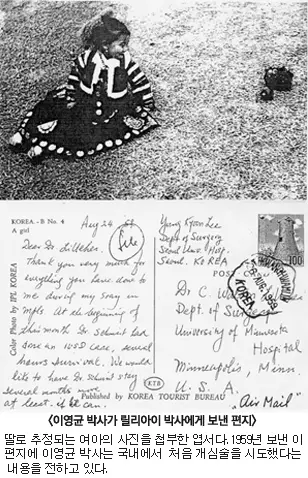 KOREA - B No. 4
A girl
Aug 24 59
file
Dear Dr. Lillehei:
Thank you very much for
everything you have done to
me during my stay in
mpls. At the beginning of
this month Dr. Schmidt had
done an VSD case, several
hours survival. We would
like to have Dr. Schmidt stay
several months more
at least. if he can.
Color Photo by IPL KOREA
Yung Kyoon Lee
Dept of Surgery
Seoul Univ. Hosp.
Seoul. KOREA
POST
100
KOREA
Dr C. W.
Dept. of Surgery
University of Minnesota
Hospital
Minneapolis, Minn.
U. S. A.
"Air Mail"
KTB
Published by KOREA TOURIST BUREAU
〈이영균 박사가 릴리아이 박사에게 보낸 편지〉
딸로 추정되는 여아의 사진을 첨부한 엽서다. 1959년 보낸 이
편지에 이영균 박사는 국내에서 처음 개심술을 시도했다는
내용을 전하고 있다.